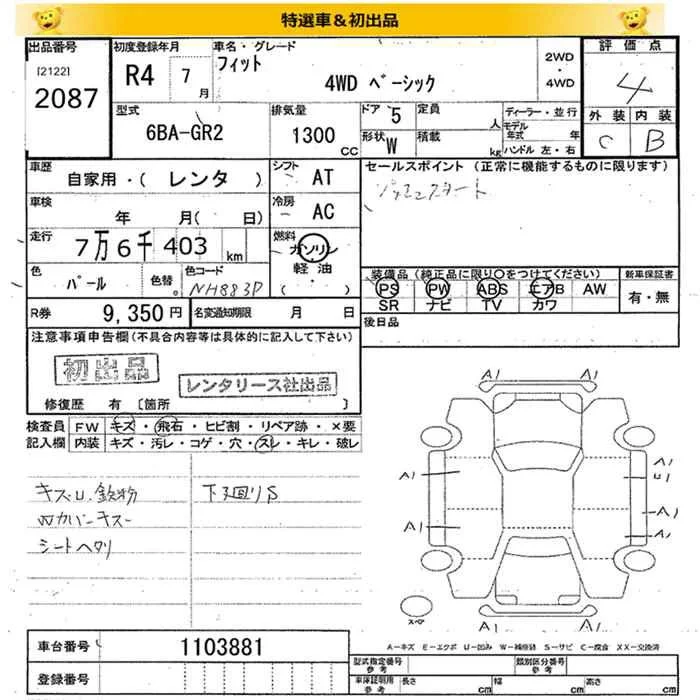 特選車&初出品
出品番号 初度登録年月 車名・グレード 評価点
[2122] R4 7月 フィット 2WD・4WD 4
2087 4WD ベーシック 外装 内装
型式 排気量 ドア 5 定員 人 ディーラー・並行 C B
6BA-GR2 1300 CC 形状 W 積載 kg モデル年式 年
ハンドル 左・右
車歴 自家用・( レンタ ) シフト AT セールスポイント (正常に機能するものに限ります)
車検 年 月( 日) 冷房 AC
走行 7万6千403 km 燃料 ガソリン
軽油
・( )
色 パール 色替 色コード NH883P
装備品 (純正品に限り○をつけてください) 新車保証書
PS PW ABS エアB AW 有・無
SR ナビ TV カワ
R券 9,350円 名変通知期限 月 日 後日品
注意事項申告欄 (不具合内容等は具体的に記入して下さい)
初出品 レンタリース社出品
修復歴 有 〔箇所 〕
検査員記入欄 FW キズ・飛石・ヒビ割・リペア跡・×要
内装 キズ・汚レ・コゲ・穴・スレ・キレ・破レ
キズU.鉄粉 下廻りS
Wカバーキズ
シートヘタリ
A1 A1
A1 A1
U1
A1 A1
A1
スペア
A1 A1
車台番号 1103881
登録番号
A-キズ E-エクボ U-凹み W-補修跡 S-サビ C-腐食 XX-交換済
型式指定番号 参考 類別区分番号 参考
車庫証明用 参考 長さ cm 幅 cm 高さ cm